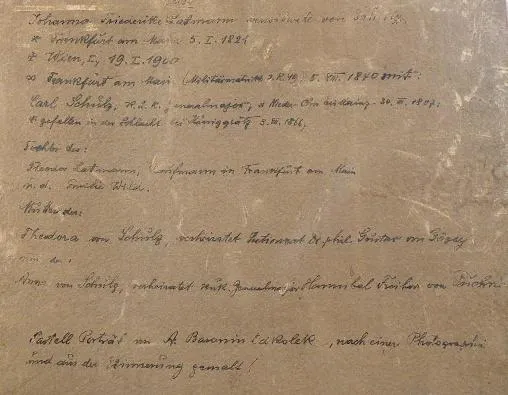 Johanna Friederike Latmann verwitwete von Schulz
* Frankfurt am Main 5. I. 1821
† Wien, I, 19. I. 1900
∞ Frankfurt am Main (Militärmatrik 5. VIII. 1840 mit:
Carl Schulz, k. u. k. Generalmajor, * Nieder 30. III. 1807,
gefallen in der Schlacht bei Königgrätz 3. VII. 1866,
Tochter des:
Theodor Latmann, Kaufmann in Frankfurt am Main
u. d. Emilie Wild.
Mutter der:
Theodora von Schulz verheiratet Dr. phil. Gustav von
und der:
Anna von Schulz, verheiratet k. u. k. Generalmajor Hannibal Freiherr von Puchner
Pastell Porträt von A. Baronin Odkolek, nach einer Photographie
und aus der Erinnerung gemalt!